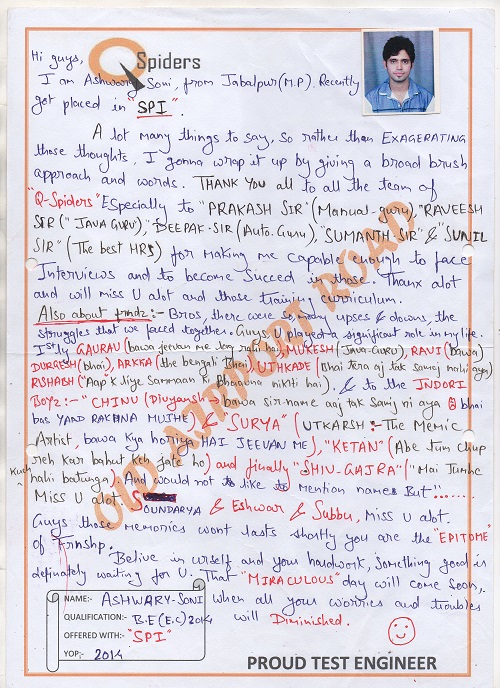 Q Spiders
Hi guys,
I am Ashwary Soni, from Jabalpur(M.P). Recently
got placed in "SPI".
A lot many things to say, so rather than EXAGERATING
those thoughts, I gonna wrap it up by giving a broad brush
approach and words. THANK YOU all to all the team of
"Q-Spiders" Especially to "PRAKASH SIR" (Manual-guru), "RAVEESH
SIR ("JAVA GURU), "DEEPAK-SIR (Auto. Guru), "SUMANTH-SIR" & "SUNIL
SIR" (The best HRs) for making me capable enough to face
Interviews and to become succeed in those. Thanx alot
and will miss U alot and those training curriculum.
Also about frndz:- Bros, there were so many upses & downs, the
struggles that we faced together. Guys, U played a significant role in my life.
Istly GAURAV (bawa jeevan me kya rahi hai), MUKESH (JAVA-GURU), RAVI (bawa)
DURGESH (bhai), ARKKA (the bengali bhai), UTHKADE (Bhai tera aaj tak samaj nahi aya)
RISHABH ("Aap k liye Sammaan ki Bhaavna nikhti hai). & to the INDORI
BOYZ:- "CHINU (Divyansh → bawa sir-name aaj tak samaj ni aya bhai
bas YAAD RAKHNA MUJHE) & "SURYA" (UTKARSH:- The Memic
Artist, bawa kya horiya HAI JEEVAN ME), "KETAN" (Abe tum chup
reh kar bahut keh jate ho) and finally "SHIV-GAJRA" ("Mai Tumhe
Kuch nahi batunga) And would not to like to Mention names But".....
Miss U alot. SOUNDARYA & Eshwar & Subbu, Miss U alot.
Guys those memories wont lasts shortly you are the "EPITOME"
of Frnshp.
Belive in urself and your hardwork, something good is
definately waiting for U. That "MIRACULOUS" day will come soon,
when all your worries and troubles
will Diminished.
NAME:- ASHWARY-SONI
QUALIFICATION:- B.E (E.C) 2014
OFFERED WITH:- "SPI"
YOP:- 2014
PROUD TEST ENGINEER
OLD AIRPORT ROAD